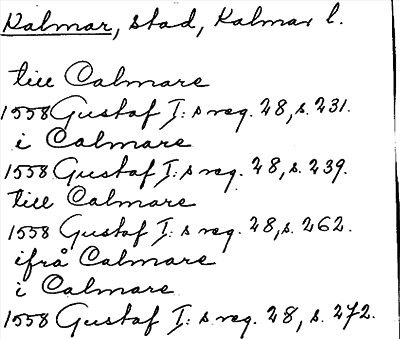 Kalmar, stad, Kalmar l.
till Calmare
1558 Gustaf I:s reg. 28, s. 231.
i Calmare
1558 Gustaf I:s reg. 28, s. 239.
till Calmare
1558 Gustaf I:s reg. 28, s. 262.
ifrå Calmare
i Calmare
1558 Gustaf I:s reg. 28, s. 272.